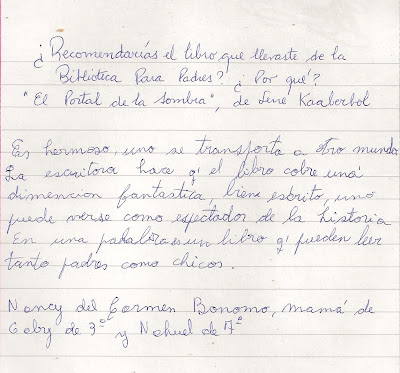 ¿Recomendarías el libro que llevaste de la
Biblioteca Para Padres? ¿Por qué?
"El Portal de la Sombra", de Lene Kaaberbol
Es hermoso, uno se transporta a otro mundo
La escritora hace q' el libro cobre una
dimencion fantastica, bien esbrito, uno
puede verse como espectador de la historia
En una palabra es un libro q' pueden leer
tanto padres como chicos.
Nancy del Carmen Bonomo, mamá de
Gaby de 3º y Nahuel de 7º